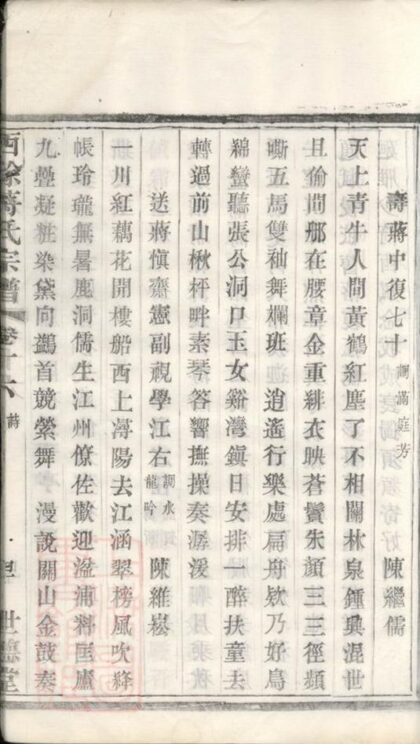 壽蔣中復七十 調滿庭芳 陳繼儒
天上青牛人間黃鶴紅塵了不相關林泉鍾興混世
且偷閒那在腰章金重緋衣映蒼鬢朱顏三三徑頻
嘶五馬雙袖舞斕班 逍遙行樂處扁舟欸乃好鳥
綿蠻聽張公洞口玉女谿灣鎮日安排一醉扶童去
轉過前山楸枰畔素琴答響撫操奏潺湲
送蔣慎齋憲副視學江右 調水龍吟 陳維崧
一川紅藕花開樓船西上潯陽去江涵翠榜風吹絳
帳玲瓏無暑鹿洞儒生江州僚佐歡迎湓浦料匡廬
九疊凝粧染黛向鷁首競縈舞 漫說關山金鼓奏
西餘蔣氏宗譜 卷十六 詩 世德堂